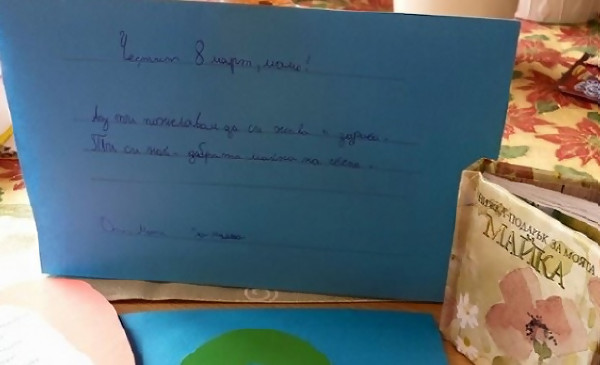 Честит 8 март, мамо!
Аз ти пожелавам да си жива и здрава.
Ти си най-добрата майка на света.
От
КНИЖКА-ПОДАРЪК ЗА МОЯТА
МАЙКА